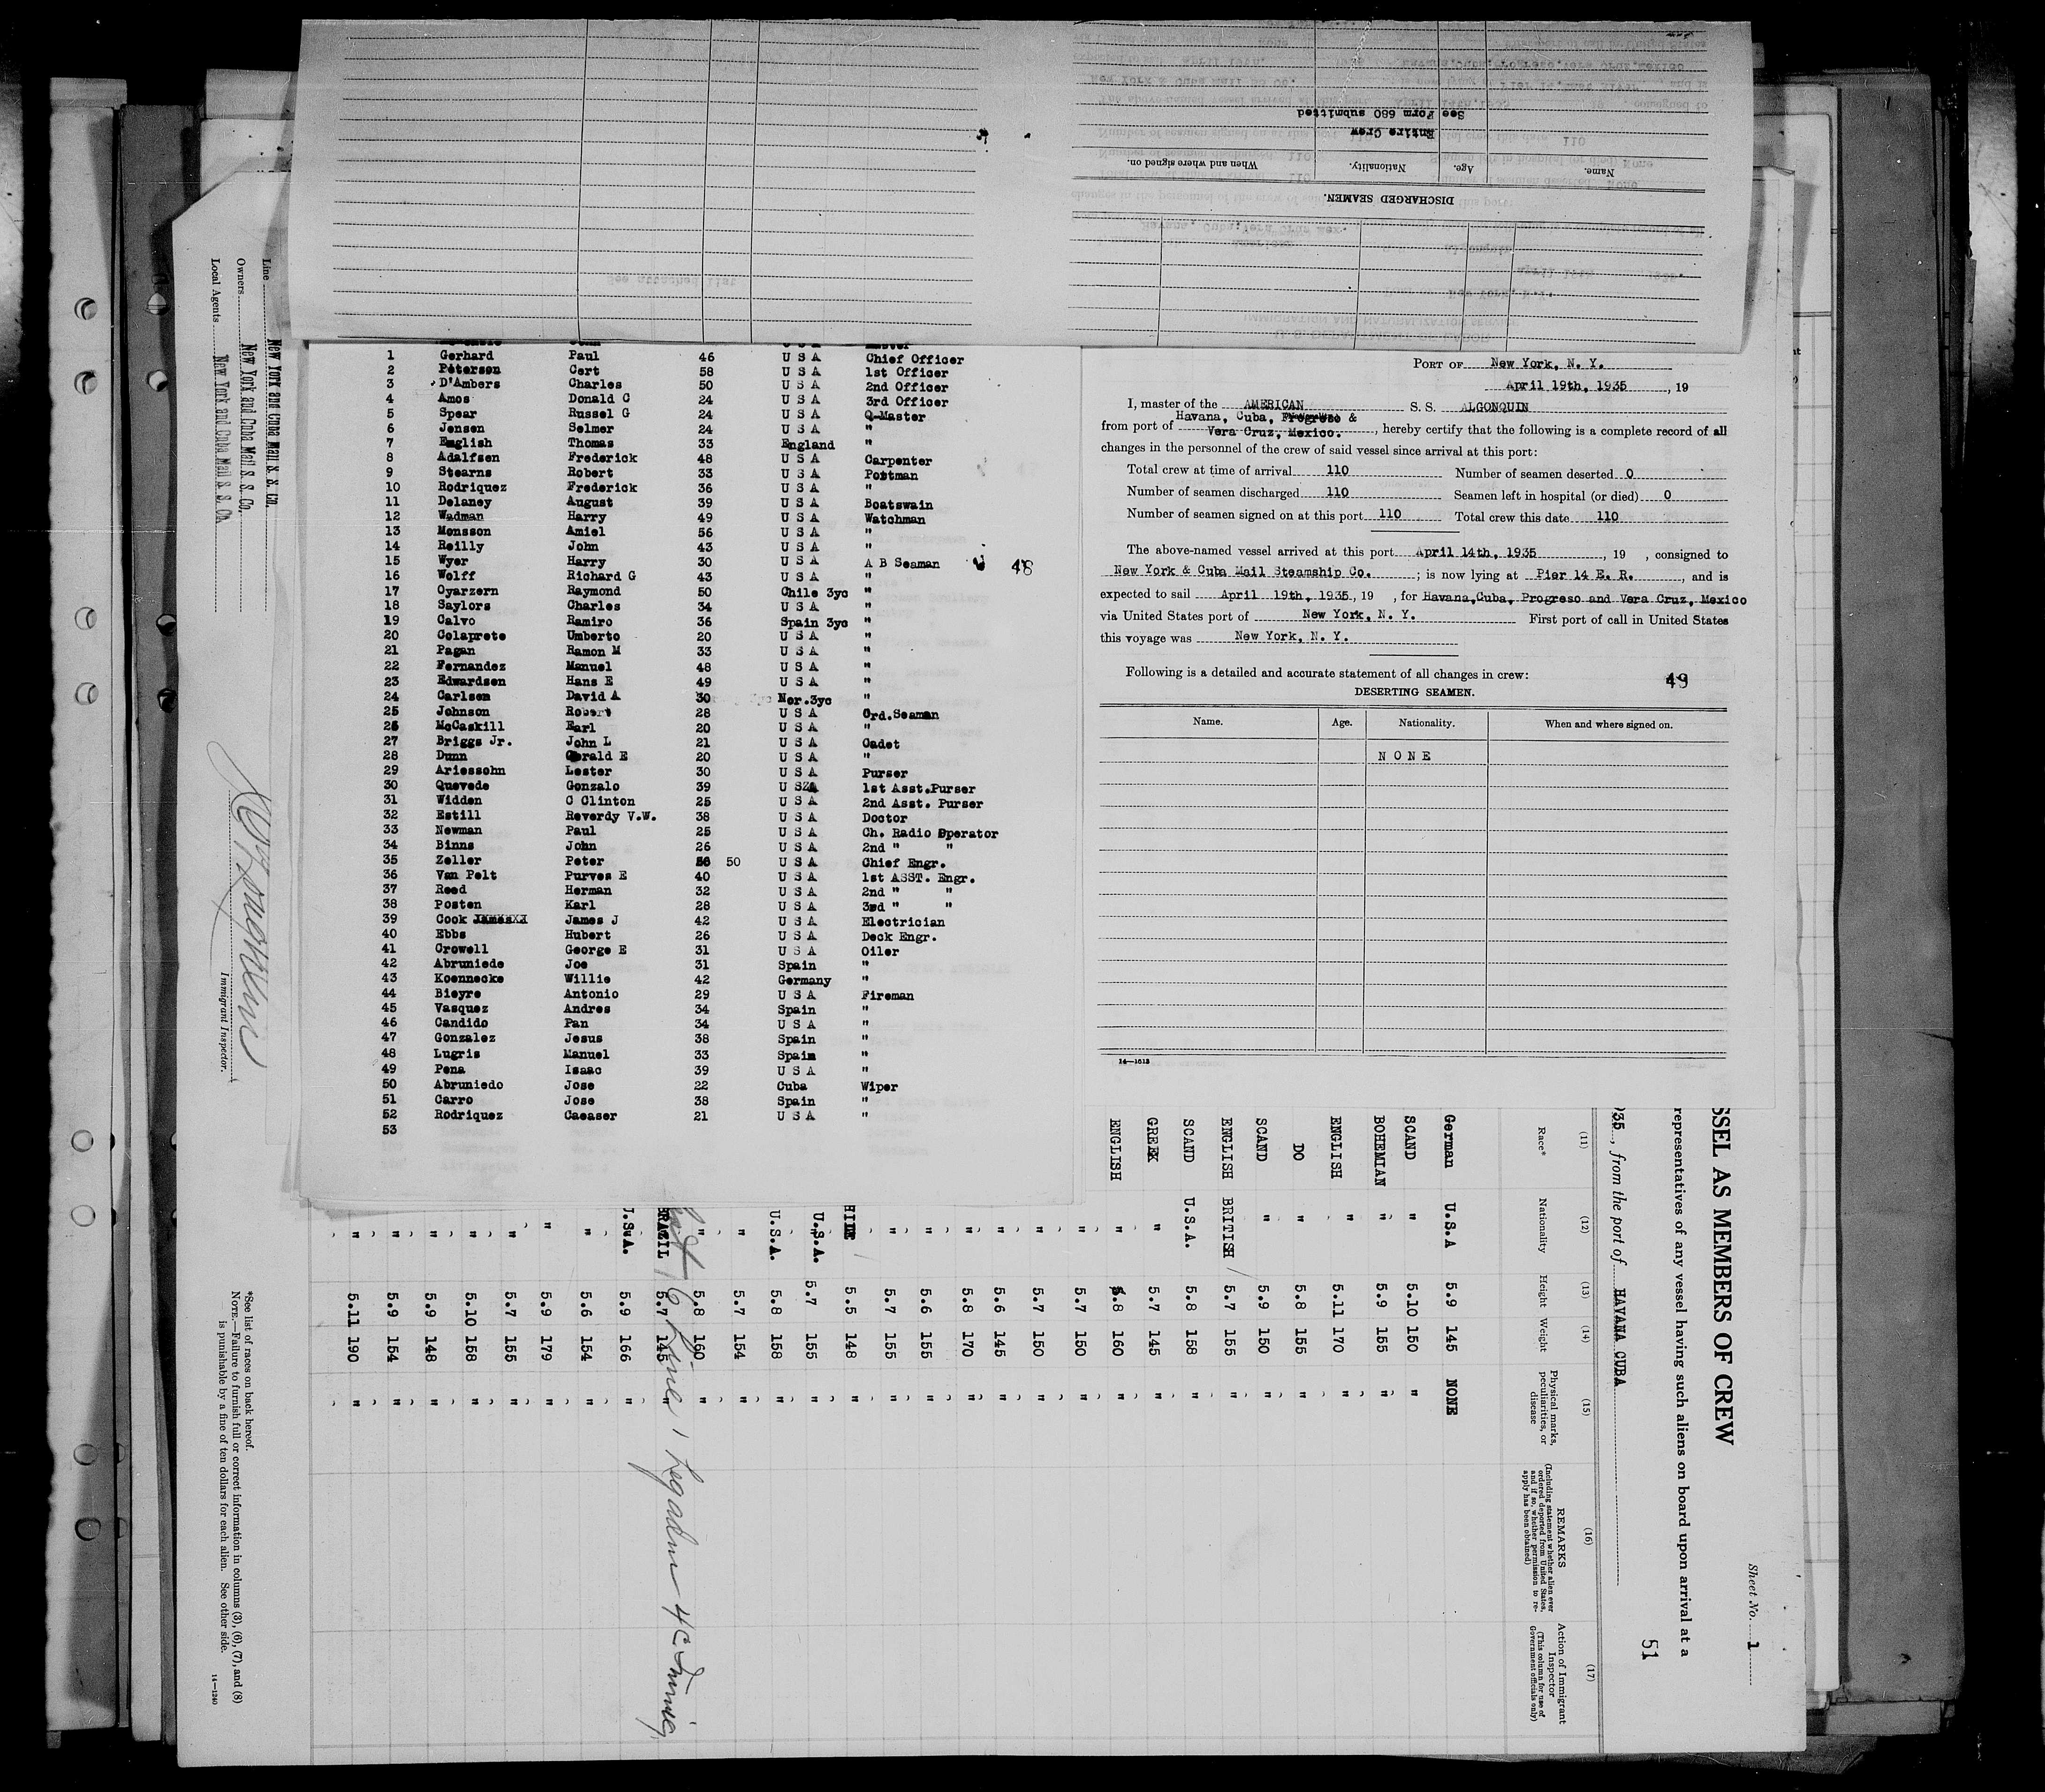 DISCHARGED SEAMEN.
Name.
Age.
Nationality.
When and where signed on.
Entire Crew
See Form 680 submitted
1 Gerhard Paul 46 U S A Chief Officer
2 Petersen Cert 58 U S A 1st Officer
3 D'Ambers Charles 50 U S A 2nd Officer
4 Amos Donald C 24 U S A 3rd Officer
5 Spear Russel G 24 U S A Q-Master
6 Jensen Selmer 24 U S A "
7 English Thomas 33 England "
8 Adalfsen Frederick 48 U S A Carpenter
9 Stearns Robert 33 U S A Postman
10 Rodriquez Frederick 36 U S A "
11 Delaney August 39 U S A Boatswain
12 Wadman Harry 49 U S A Watchman
13 Monsson Amiel 56 U S A "
14 Reilly John 43 U S A "
15 Wyer Harry 30 U S A A B Seaman 48
16 Wolff Richard G 43 U S A "
17 Oyarzern Raymond 50 Chile 3yc "
18 Saylors Charles 34 U S A "
19 Calvo Ramiro 36 Spain 3yc "
20 Colaprete Umberto 20 U S A "
21 Pagan Ramon M 33 U S A "
22 Fernandez Manuel 48 U S A "
23 Edwardsen Hans E 49 U S A "
24 Carlsen David A 30 Nor.3yc "
25 Johnson Robert 28 U S A Ord.Seaman
26 McCaskill Earl 20 U S A "
27 Briggs Jr. John L 21 U S A Cadet
28 Dunn Gerald E 20 U S A "
29 Ariessohn Lester 30 U S A Purser
30 Quevede Gonzalo 39 U S A 1st Asst.Purser
31 Widden C Clinton 25 U S A 2nd Asst. Purser
32 Estill Reverdy V.W. 38 U S A Doctor
33 Newman Paul 25 U S A Ch. Radio Operator
34 Binns John 26 U S A 2nd " "
35 Zeller Peter 50 U S A Chief Engr.
36 Van Pelt Purves E 40 U S A 1st ASST. Engr.
37 Reed Herman 32 U S A 2nd " "
38 Posten Karl 28 U S A 3rd " "
39 Cook James J 42 U S A Electrician
40 Ebbs Hubert 26 U S A Deck Engr.
41 Crowell George E 31 U S A Oiler
42 Abruniede Joe 31 Spain "
43 Koennecke Willie 42 Germany "
44 Bieyre Antonio 29 U S A Fireman
45 Vasquez Andres 34 Spain "
46 Candido Pan 34 U S A "
47 Gonzalez Jesus 38 Spain "
48 Lugris Manuel 33 Spain "
49 Pena Isaac 39 U S A "
50 Abruniedo Jose 22 Cuba Wiper
51 Carro Jose 38 Spain "
52 Rodriquez Caeaser 21 U S A "
53
PORT OF New York, N. Y.
April 19th, 1935, 19
I, master of the AMERICAN S. S. ALGONQUIN
Havana, Cuba, Progreso &
from port of Vera Cruz, Mexico., hereby certify that the following is a complete record of all
changes in the personnel of the crew of said vessel since arrival at this port:
Total crew at time of arrival 110 Number of seamen deserted 0
Number of seamen discharged 110 Seamen left in hospital (or died) 0
Number of seamen signed on at this port 110 Total crew this date 110
The above-named vessel arrived at this port April 14th, 1935, 19 , consigned to
New York & Cuba Mail Steamship Co. ; is now lying at Pier 14 E. R. , and is
expected to sail April 19th, 1935, 19 , for Havana,Cuba, Progreso and Vera Cruz, Mexico
via United States port of New York, N. Y. First port of call in United States
this voyage was New York, N. Y.
Following is a detailed and accurate statement of all changes in crew: 49
DESERTING SEAMEN.
Name. Age. Nationality. When and where signed on.
N O N E
14—1613
Sheet No. 1
SSEL AS MEMBERS OF CREW
representatives of any vessel having such aliens on board upon arrival at a
51
935, from the port of HAVANA CUBA
(11) (12) (13) (14) (15) (16) (17)
Race* Nationality Height Weight Physical marks, peculiarities, or disease
REMARKS
(Including statement whether alien ever ordered deported from United States, and if so, whether permission to re-apply has been obtained)
Action of Immigrant Inspector
(This column for use of Government officials only)
German U.S.A 5.9 145 NONE
SCAND " 5.10 150 "
BOHEMIAN " 5.9 155 "
ENGLISH " 5.11 170 "
DO " 5.8 155 "
SCAND " 5.9 150 "
ENGLISH BRITISH 5.7 155 "
SCAND U.S.A. 5.8 158 "
GREEK " 5.7 145 "
ENGLISH " 5.8 160 "
" 5.7 150 "
" 5.7 150 "
" 5.6 145 "
" 5.8 170 "
" 5.6 155 "
" 5.7 155 "
5.5 148 "
U.S.A. 5.7 155 "
U.S.A. 5.8 158 "
" 5.7 154 "
" 5.8 160 "
BRAZIL 5.7 145 "
U.S.A. 5.9 166 "
" 5.6 154 "
" 5.9 179 "
" 5.7 155 "
" 5.10 158 "
" 5.9 148 "
" 5.9 154 "
" 5.11 190 "
*See list of races on back hereof.
NOTE.—Failure to furnish full or correct information in columns (3), (6), (7), and (8)
is punishable by a fine of ten dollars for each alien. See other side.
14—1240
Line New York and Cuba Mail S. S. Co.
Owners New York and Cuba Mail S. S. Co.
Local Agents New York and Cuba Mail S. S. Co.
Immigrant Inspector.